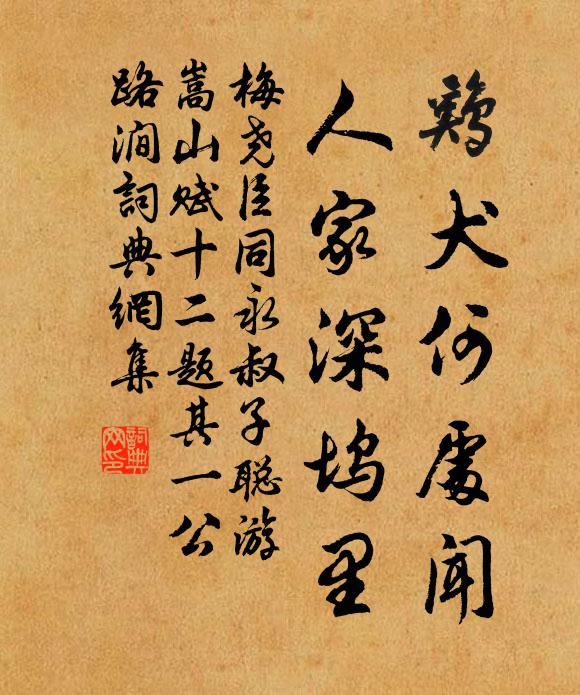 鷄犬何處聞
人家深塢里
梅尧臣同永叔子聪游
嵩山赋十二题其一公
路涧詞典網集
詞典
网印